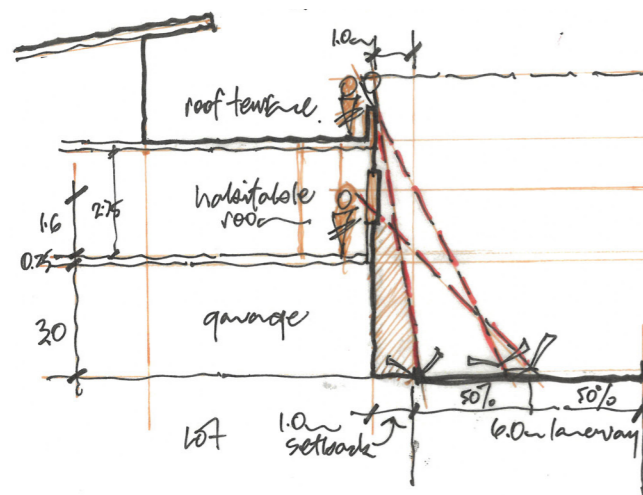 1.0m
roof terrace
habitable
room
2.75
1.6
0.25
garage
3.0
50%
50%
LOT
1.0m
setback
6.0m laneway